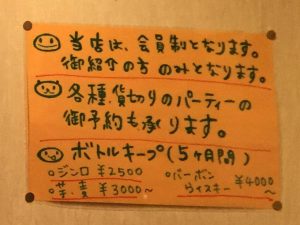 当店は、会員制となります。
御紹介の方 のみとなります。
各種、貸切りのパーティーの
御予約も承ります。
ボトルキープ(5ヶ月間)
○ジンロ ¥2500
○芋、麦 ¥3000〜
○バーボン
ウイスキー ¥4000〜